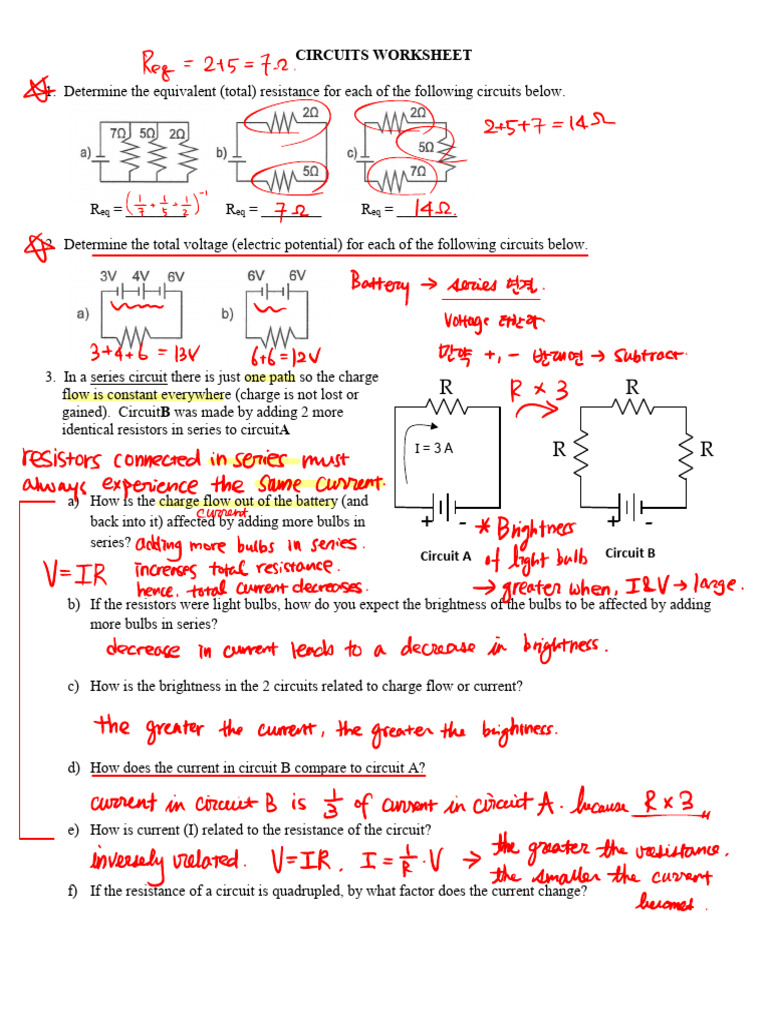 CIRCUITS WORKSHEET
Req = 2+5 = 7Ω.
1. Determine the equivalent (total) resistance for each of the following circuits below.
2+5+7 = 14Ω
7Ω 5Ω 2Ω
2Ω
2Ω
5Ω
a)
b)
c)
5Ω
7Ω
Req = (1/7 + 1/5 + 1/2)⁻¹
Req = 7Ω
Req = 14Ω.
2. Determine the total voltage (electric potential) for each of the following circuits below.
3V 4V 6V
6V 6V
Battery → series 연결.
a)
b)
Voltage 더한다
3+4+6 = 13V
6+6 = 12V
만약 +, - 반대면 → subtract.
3. In a series circuit there is just one path so the charge
flow is constant everywhere (charge is not lost or
gained). CircuitB was made by adding 2 more
identical resistors in series to circuitA
R
R × 3
R
I = 3 A
R
R
resistors connected in series must
always experience the same current.
+ -
+ -
Circuit A
Circuit B
a) How is the charge flow out of the battery (and
current
back into it) affected by adding more bulbs in
series? adding more bulbs in series.
increases total resistance.
hence, total current decreases.
V=IR
* Brightness
of light bulb
→ greater when, I&V → large.
b) If the resistors were light bulbs, how do you expect the brightness of the bulbs to be affected by adding
more bulbs in series?
decrease in current leads to a decrease in brightness.
c) How is the brightness in the 2 circuits related to charge flow or current?
the greater the current, the greater the brighiness.
d) How does the current in circuit B compare to circuit A?
current in circuit B is 1/3 of current in circuit A. because R × 3
e) How is current (I) related to the resistance of the circuit?
inversely related. V=IR, I = 1/R · V → the greater the resistance.
the smaller the current
becomes.
f) If the resistance of a circuit is quadrupled, by what factor does the current change?